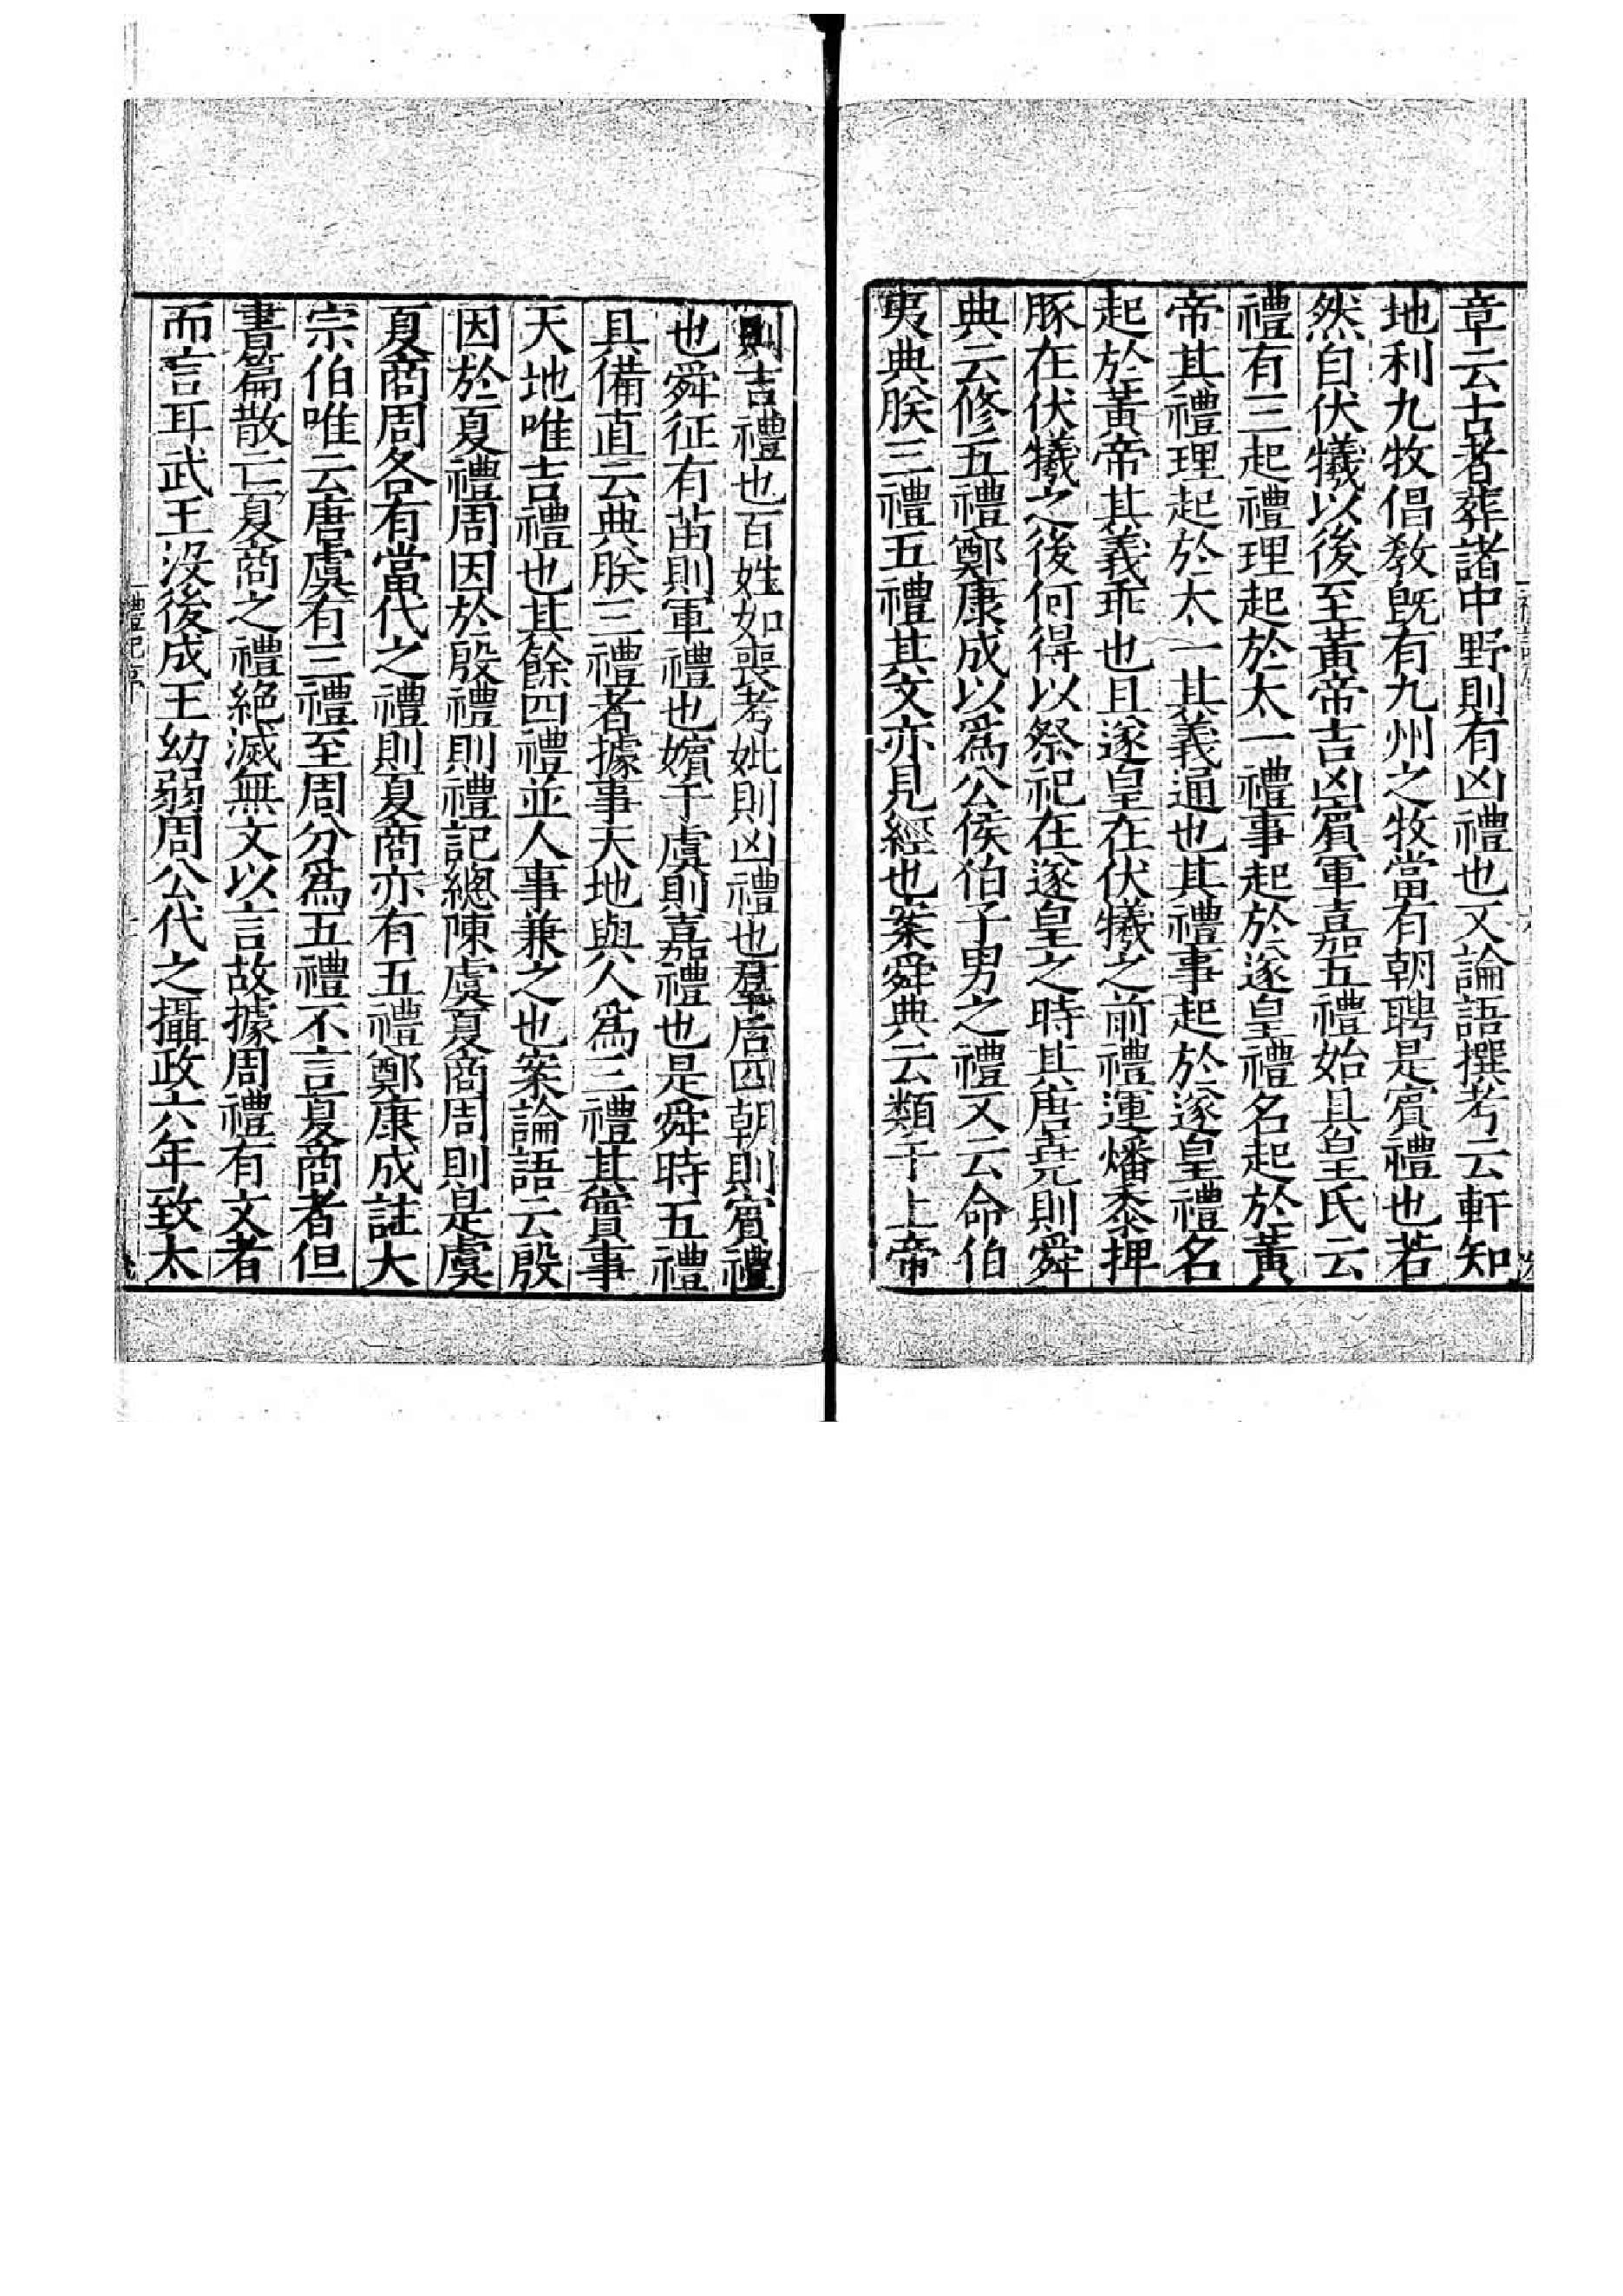 章云古者葬諸中野則有凶禮也又論語撰考云軒知
地利九牧倡教旣有九州之牧當有朝聘是賔禮也若
然自伏犧以後至黃帝吉凶賔軍嘉五禮始具皇氏云
禮有三起禮理起於太一禮事起於遂皇禮名起於黃
帝其禮理起於太一其義通也其禮事起於遂皇禮名
起於黃帝其義乖也且遂皇在伏犧之前禮運燔黍捭
豚在伏犧之後何得以祭祀在遂皇之時其唐堯則舜
典云修五禮鄭康成以爲公侯伯子男之禮又云命伯
夷典朕三禮五禮其文亦見經也案舜典云類于上帝
則吉禮也百姓如喪考妣則凶禮也羣后四朝則賔禮
也舜征有苗則軍禮也嬪于虞則嘉禮也是舜時五禮
具備直云典朕三禮者據事天地與人爲三禮其實事
天地唯吉禮也其餘四禮並人事兼之也案論語云殷
因於夏禮周因於殷禮則禮記緫陳虞夏商周則是虞
夏商周各有當代之禮則夏商亦有五禮鄭康成註大
宗伯唯云唐虞有三禮至周分爲五禮不言夏商者但
書篇散亡夏商之禮絶滅無文以言故據周禮有文者
而言耳武王没後成王幼弱周公代之攝政六年致太
禮記序